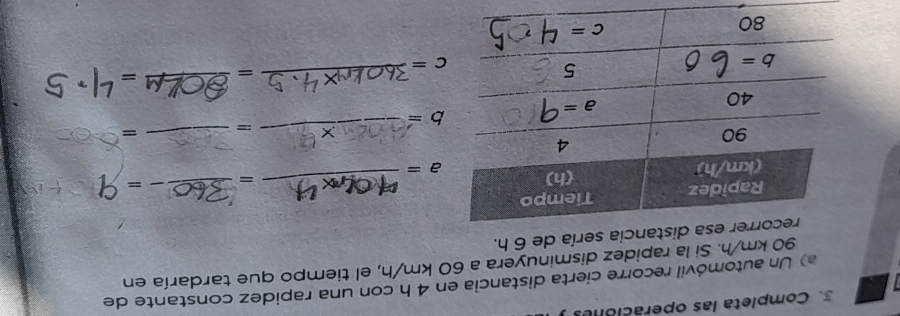 3. Completa las operaciones y
a) Un automóvil recorre cierta distancia en 4 h con una rapidez constante de
90 km/h. Si la rapidez disminuyera a 60 km/h, el tiempo que tardaría en
recorrer esa distancia sería de 6 h.
Rapidez (km/h) Tiempo (h)
90 4
40 a = 9
b = 60 5
80 c = 4.5
a = 90km x 4 = 360 = 9
b = x = =
c = 360km x 4.5 = 80km = 4.5